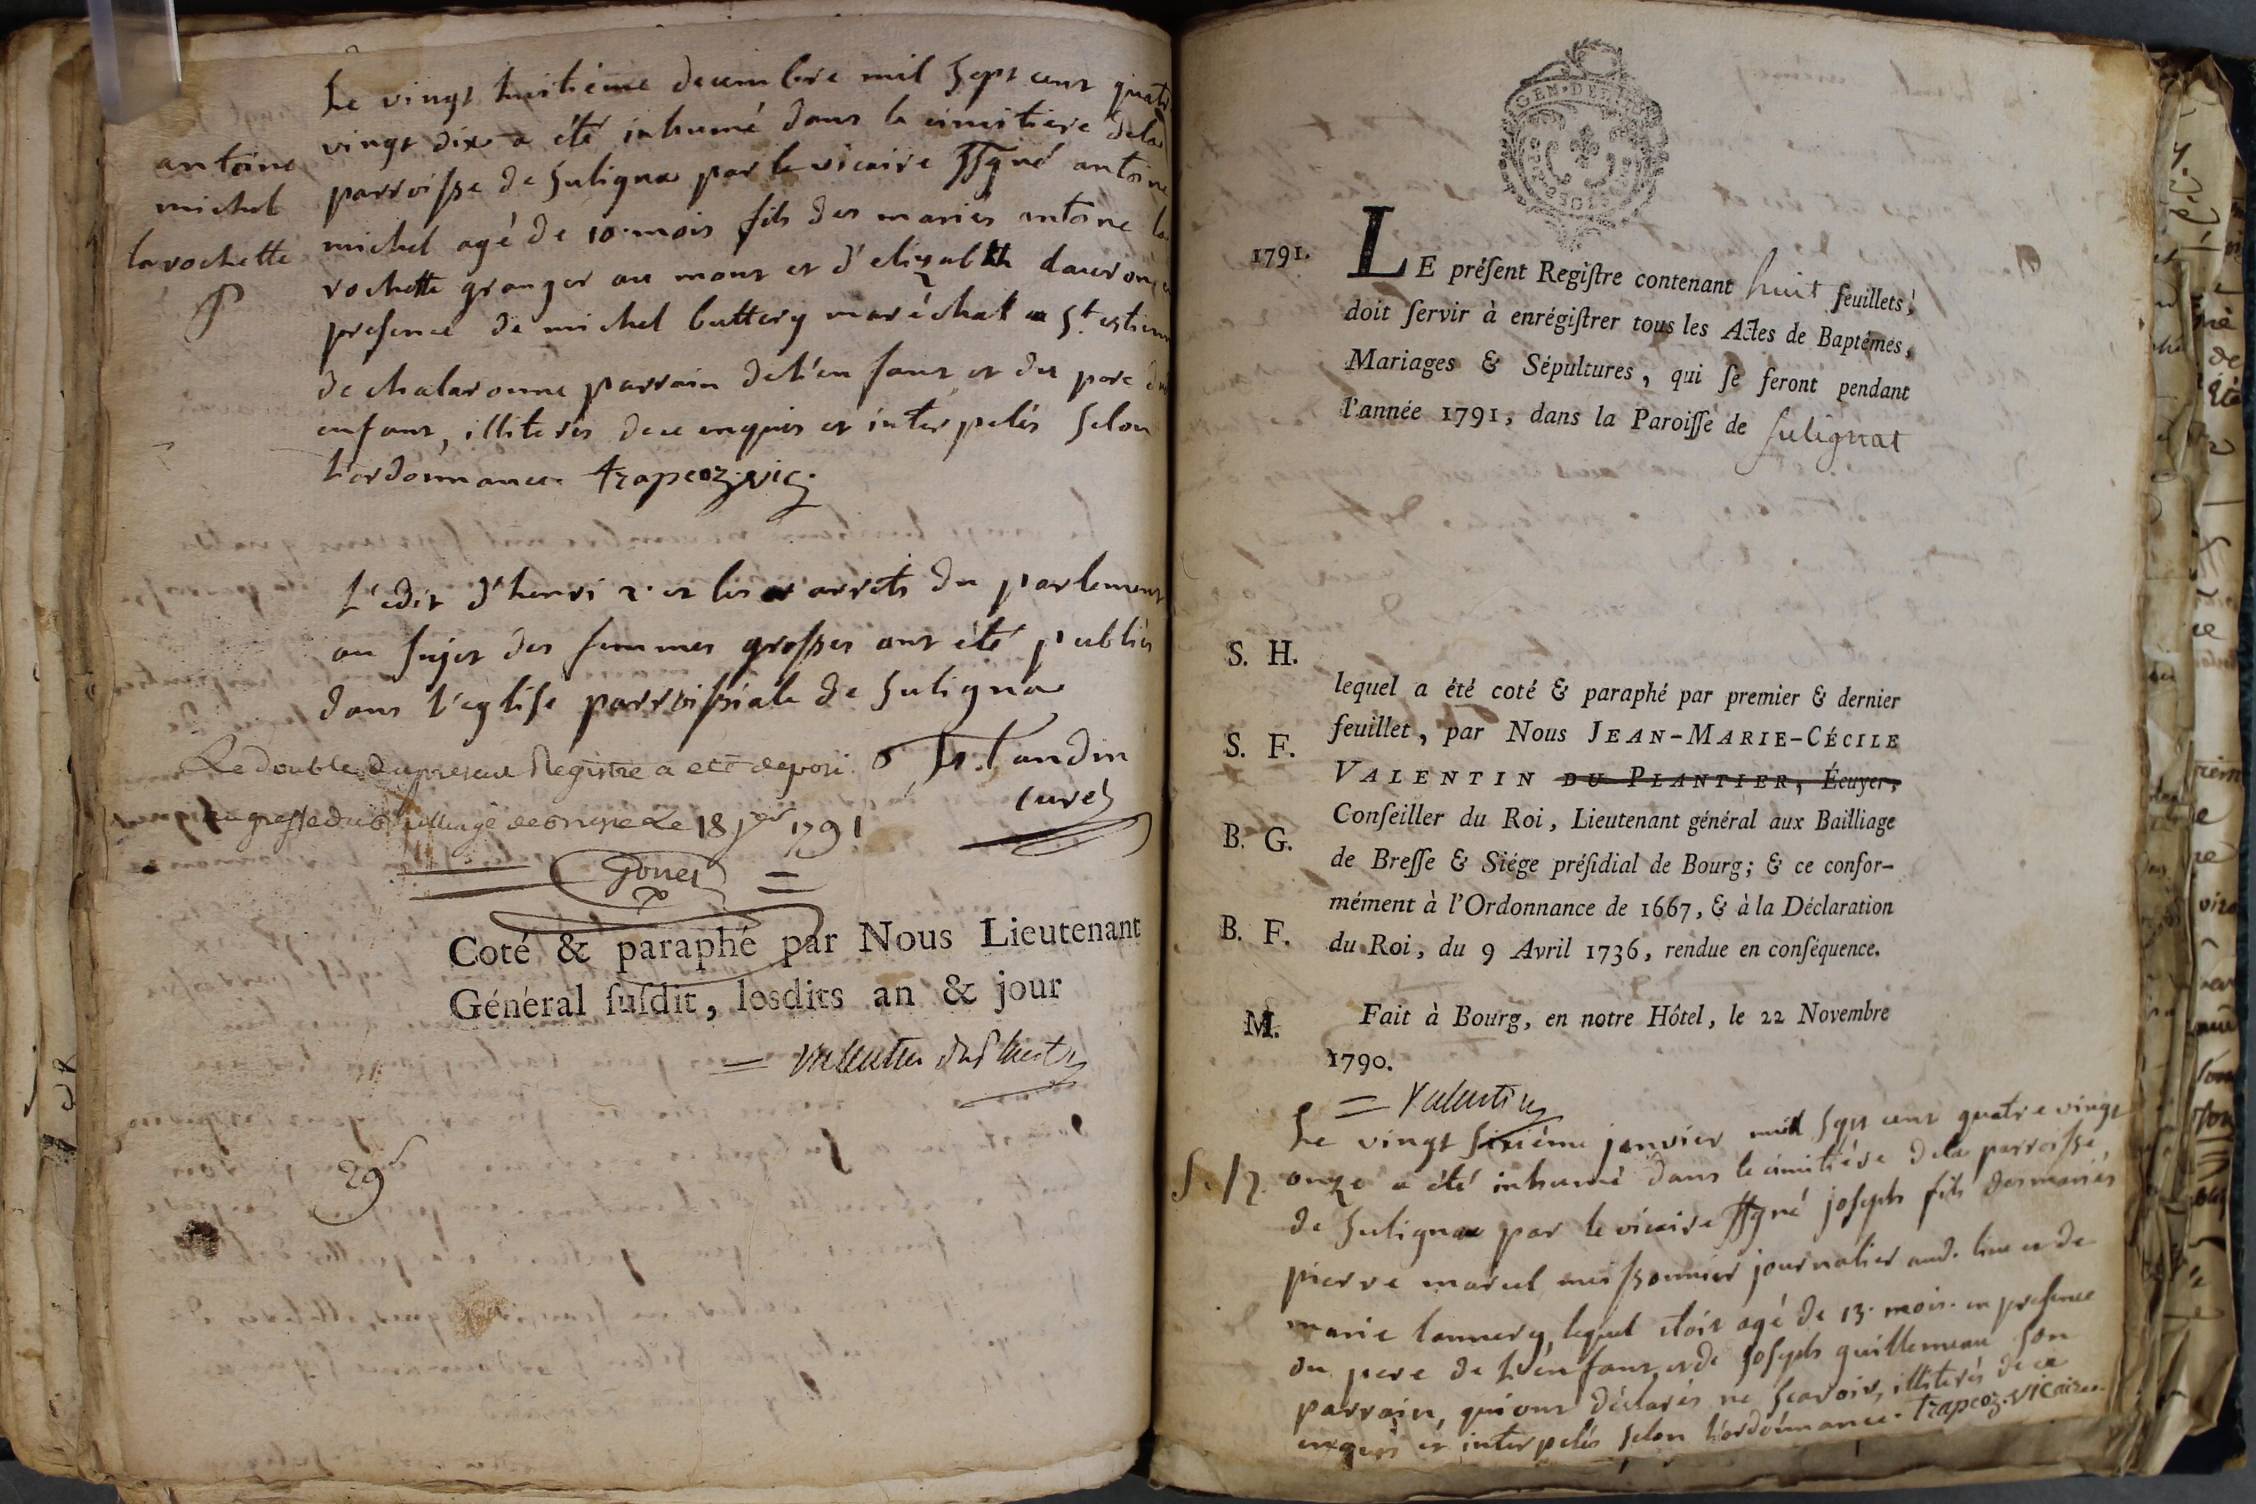 Le vingt huitieme decembre mil sept cent quatre
vingt dix a été inhumé dans le cimitiere dela
parroisse de suligna par le vicaire ssgné antoine
michel agé de 10 mois fils des mariés antoine la
rochette granger au mont et d'elizabeth
presence de michel buttery maréchal a St. estienne
de chalaronne parrain de l'enfant et du pere du
enfant, illiterés de ce enquis et interpelés selon
l'ordonnance trapeoz vic.
antoine
michel
larochette
L'edit d'henri 2. et les arrets du parlement
au sujet des femmes grosses ont été publiés
dans l'eglise parroissiale de suligna
tandin
curé
Le double du present Registre a eté deposé
au greffe du Bailliage de Bresse Le 18 jer 1791
Coté & paraphé par Nous Lieutenant
Général ſuſdit, leſdits an & jour
= Valentin
29
GEN. DE
1791. LE préſent Regiſtre contenant huit feuillets,
doit ſervir à enrégiſtrer tous les Actes de Baptêmes,
Mariages & Sépultures, qui ſe feront pendant
l'année 1791, dans la Paroiſſe de sulignat
S. H.
lequel a été coté & paraphé par premier & dernier
feuillet, par Nous JEAN-MARIE-CÉCILE
S. F.
VALENTIN DU PLANTIER, Écuyer,
Conſeiller du Roi, Lieutenant général aux Bailliage
B. G.
de Breſſe & Siége préſidial de Bourg; & ce confor-
mément à l'Ordonnance de 1667, & à la Déclaration
B. F.
du Roi, du 9 Avril 1736, rendue en conſéquence.
M.
Fait à Bourg, en notre Hôtel, le 22 Novembre
1790.
= Valentin
Le vingt sixiéme janvier mil sept cent quatre vingt
onze a été inhumé dans le cimitiére dela parroisse
de suligna par le vicaire ssgné joseph fils des mariés
pierre marcel meissonnier journalier aud. lieu et de
marie lannery, lequel etoit agé de 13. mois. en presence
du pere de l'enfant et de joseph guillemeau son
parrain, qui ont déclarés ne scavoir, illiterés de ce
enquis et interpelés selon l'ordonnance. trapeoz. vicaire.